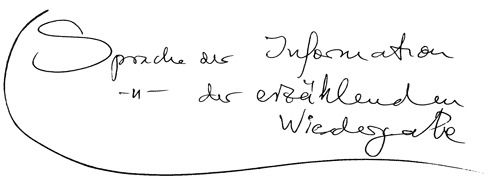 Sprache der Information
-"- der erzählenden
Wiedergabe